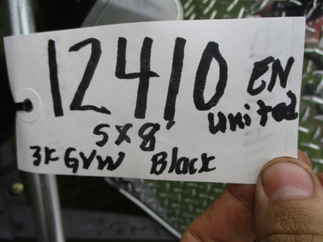 12410 EN
United
5 x 8'
3K GVW Black